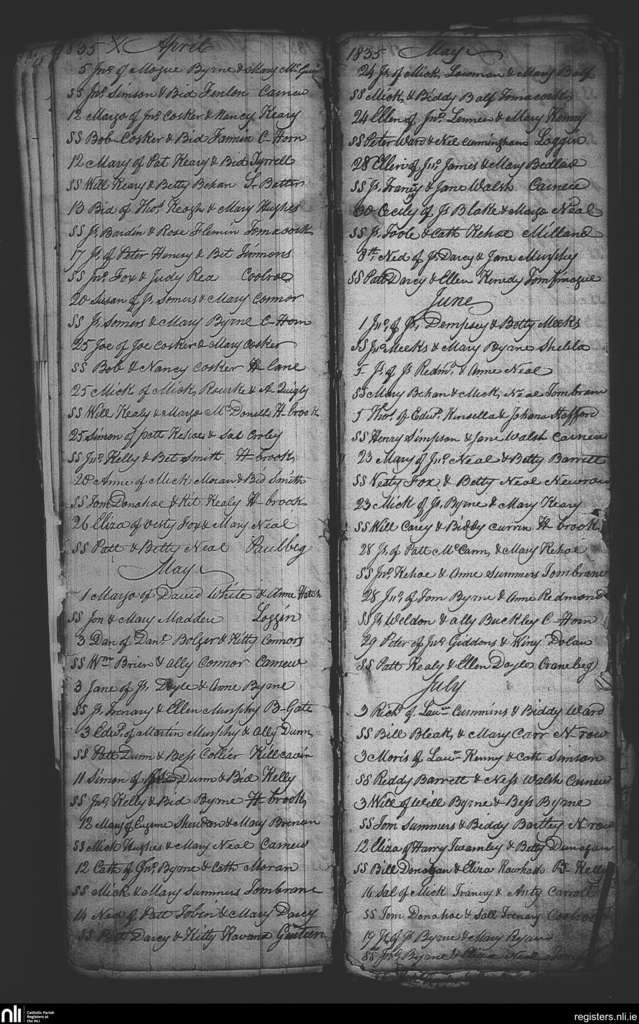 1835 X April
5 Jno. of Mogue Byrne & Mary
SS Jno. Simson & Bid Fenlon Carnew
12 Margo of Jno. Cosker & Nancy Keary
SS Bob Cosker & Bid C-Horn
12 Mary of Pat Keary & Bid Tyrrell
SS Will Keary & Betty Behan
13 Bid of Thos. Keogh & Mary Hughes
SS J. & Rose
17 J. of Peter & Bet Timmons
SS Jno. Fox & Judy Rea Coolroe
20 Susan of Js. Somers & Mary Connor
SS Js. Somers & Mary Byrne C-Horn
25 Joe of Joe Cosker & Mary Cosker
SS Bob & Nancy Cosker H lane
25 Mick of Mick Rourke & A. Quigly
SS Will Kealy & Margo McDonell H brook
25 Simon of patt Kehoe & Sas
SS Jno. Kelly & Bet Smith H brook
26 Anne of Mick Moran & Bid Smith
SS Tom Donahoe & Kit Kealy H brook
26 Eliza of Vesty Fox & Mary Neal
SS Patt & Betty Neal Paulbeg
May
1 Margo of David White & Anne
SS Jon & Mary Madden Loggin
3 Dan of Danl. Bolger & Kitty Connors
SS Wm. Brien & Ally Connor Carnew
3 Jane of Js. Doyle & Anne Byrne
SS J. & Ellen Murphy B-Gate
3 Edwd. of Martin Murphy & Ally Dunn
SS Patt Dunn & Bess Collier Killcavin
11 Simon of Dunn & Bid Kelly
SS Jno. Kelly & Bid Byrne H brook
12 Mary of Eugene Sheridon & Mary Brenan
SS Mick Hughes & Mary Neal Carnew
12 Cath of Jno. Byrne & Cath Moran
SS Mick & Mary Summers Tombrane
14 Ned of Patt Tobin & Mary Darcy
SS Patt Darcy & Kitty
1835 May
24 Js. of Mick & Mary Balf
SS Mick & Biddy Balf
24 Ellen of Jno. & Mary Kenny
SS Peter Ward & Nel Cunningham Loggin
28 Ellen of Jno. James & Mary
SS J. & Jane Walsh Carnew
30 Cicily of Js. Blake & Margo Neal
SS J. Toole & Cath Kehoe Milland
3th Ned of Js. Darcy & Jane Murphy
SS Patt Darcy & Ellen Kenedy
June
1 Jno. of Js. Dempsey & Betty Meeks
SS Jno. Meeks & Mary Byrne
Js. of Js. Redmd. & Anne Neal
SS Mary Behan & Mick Neal Tombrane
Thos. of Edwd. Kinsella & Johana Stafford
SS Henry Simpson & Jane Walsh Carnew
23 Mary of Jno. Neal & Betty Barrett
SS Vesty Fox & Betty Neal Newrow
23 Mick of Js. Byrne & Mary Keary
SS Will Carey & Biddy Curran H brook
28 Js. of Patt McCann & Mary Kehoe
SS Jno. Kehoe & Anne Summers Tombrane
28 Jno. of Tom Byrne & Anne Redmond
SS J. Weldon & Ally Buckley C-Horn
29 Peter of Jno. Giddons & Winy Dolan
SS Patt Kealy & Ellen Doyle Cranebeg
July
3 Richd. of Law. Cummins & Biddy Ward
SS Bill Bleak & Mary Carr N-row
3 Moris of Law. Kenny & Cath Simson
SS Reddy Barrett & Ness Walsh Carnew
3 Will of Will Byrne & Bess Byrne
SS Tom Summers & Biddy Bartley N row
12 Eliza of Harry & Betty Dunagan
SS Bill Donagan & Eliza
16 Sal of Mick & Anty Carroll
SS Tom Donahoe & Sall
19 J. of J. Byrne & Mary Byrne
SS Jno. Byrne &
nli
Catholic Parish Registers at the NLI
registers.nli.ie